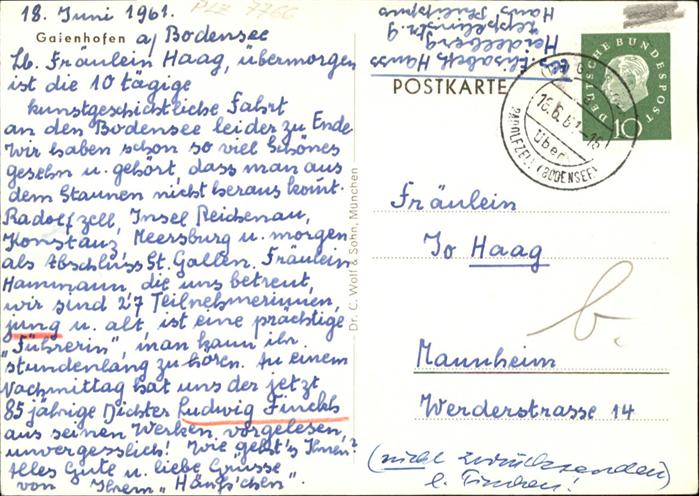 18. Juni 1961.
PLZ 7766
Gaienhofen a/ Bodensee
Lb. Fräulein Haag, übermorgen
ist die 10 tägige
kunstgeschichtliche Fahrt
an den Bodensee leider zu Ende
Wir haben schon so viel Schönes
gesehn u. gehört, dass man aus
dem Staunen nicht heraus komt.
Radolfzell, Insel Reichenau,
Konstanz, Meersburg u. morgen
als Abschluss St. Gallen. Fräulein
Hammann, die uns betreut,
wir sind 27 Teilnehmerinnen,
jung u. alt, ist eine prächtige
"Führerin", man kann ihr
stundenlang zu hören. An einem
Nachmittag hat uns der jetzt
85 jährige Dichter Ludwig Finckh
aus seinen Werken vorgelesen,
unvergesslich! Wie geht's Ihnen?
Alles Gute u. liebe Grüsse
von Ihrem "Häns'chen".
Dr. C. Wolf & Sohn, München
Elisabeth Hanss
Heidelberg
Zeppelinstr. 9
Hans Philippus
POSTKARTE
DEUTSCHE BUNDESPOST
10
18.6.61-15
über
RADOLFZELL (BODENSEE)
Fräulein
Jo Haag
b.
Mannheim
Werderstrasse 14
(nicht zurücksenden)